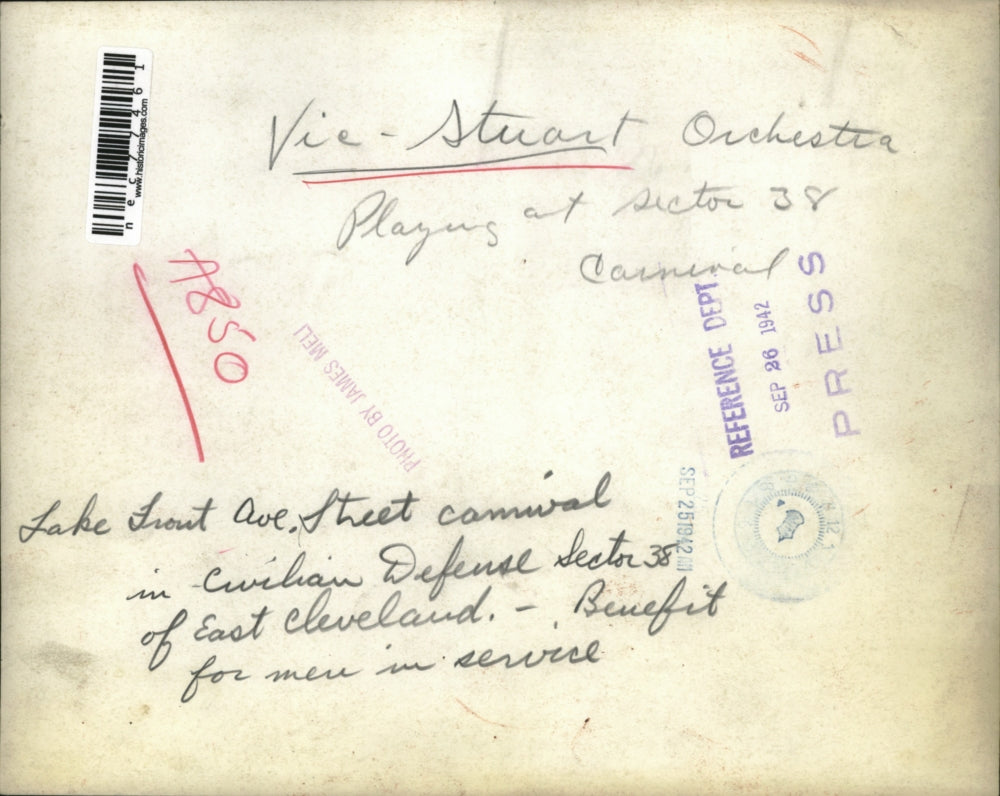 Vic - Stuart Orchestra
Playing at sector 38
Carnival
nec77461
www.historicimages.com
A850
PHOTO BY JAMES MELI
REFERENCE DEPT.
SEP 26 1942
PRESS
SEP 25 1942
12
Lake Front Ave. Street carnival
in Civilian Defense Sector 38
of East Cleveland. - Benefit
for men in service